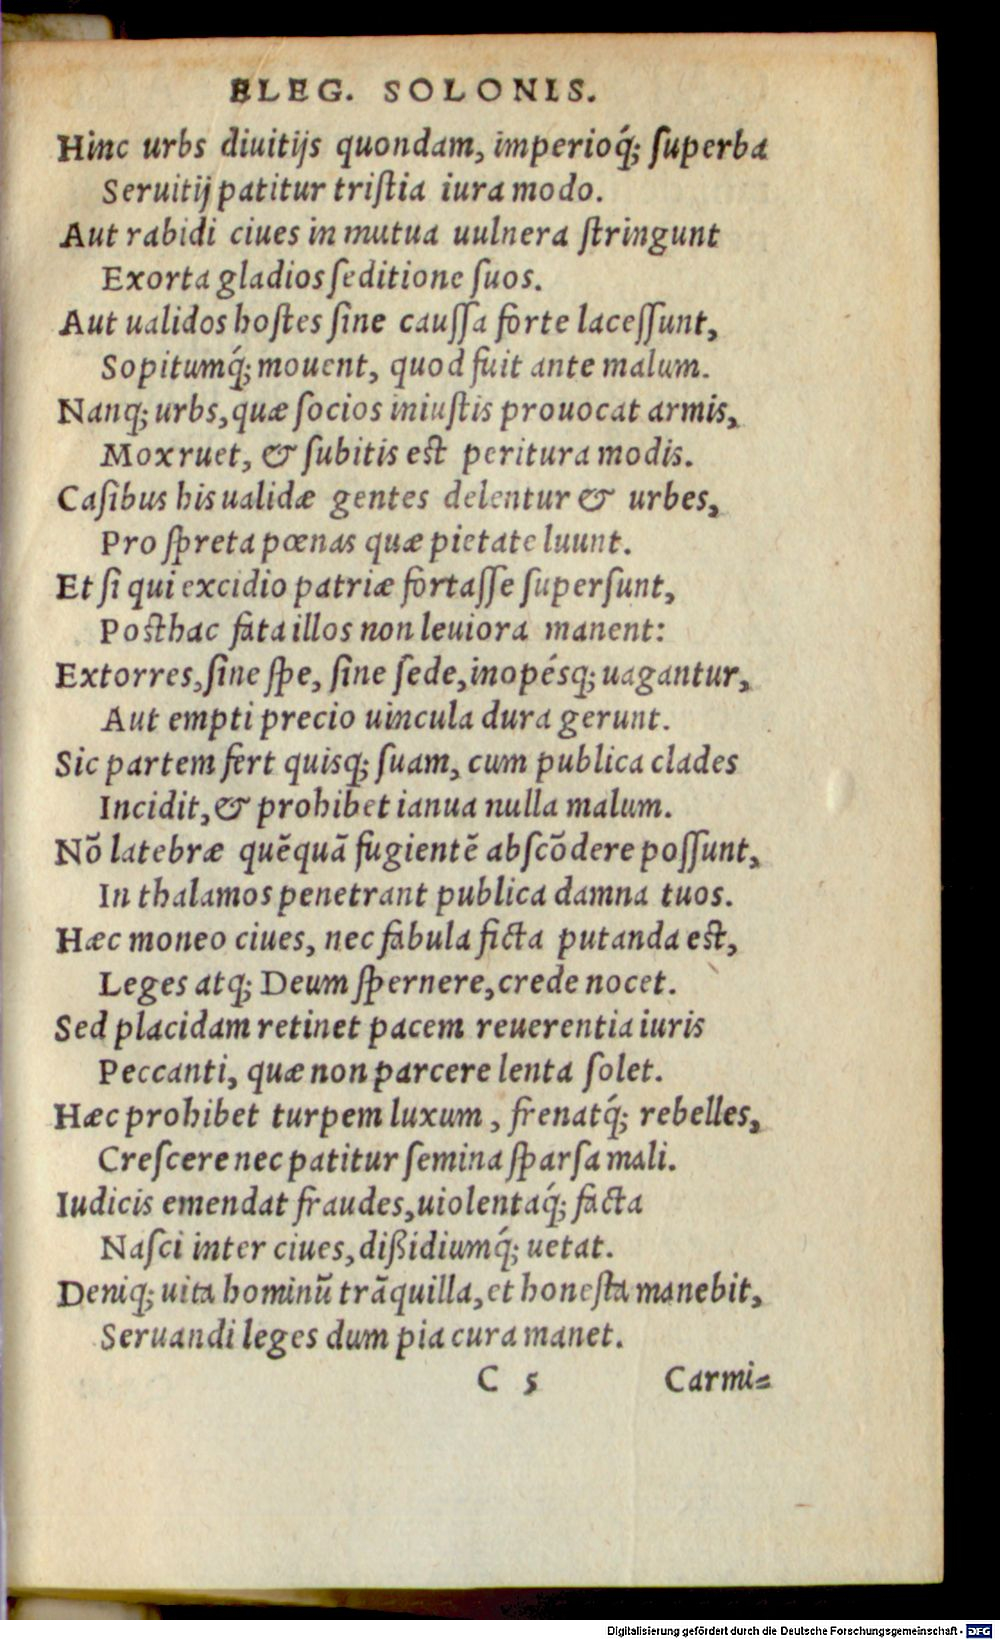 ELEG. SOLONIS.
Hinc urbs diuitijs quondam, imperioq́; ſuperba
Seruitij patitur triſtia iura modo.
Aut rabidi ciues in mutua uulnera ſtringunt
Exorta gladios ſeditione ſuos.
Aut ualidos hoſtes ſine cauſſa forte laceſſunt,
Sopitumq́; mouent, quod fuit ante malum.
Nanq; urbs, quæ ſocios iniuſtis prouocat armis,
Mox ruet, & ſubitis est peritura modis.
Caſibus his ualidæ gentes delentur & urbes,
Pro ſpreta pœnas quæ pietate luunt.
Et ſi qui excidio patriæ fortaſſe ſuperſunt,
Posthac fata illos non leuiora manent:
Extorres, ſine ſpe, ſine ſede, inopésq; uagantur,
Aut empti precio uincula dura gerunt.
Sic partem fert quisq; ſuam, cum publica clades
Incidit, & prohibet ianua nulla malum.
Nõ latebræ quẽquã fugientẽ abſcõdere poſſunt,
In thalamos penetrant publica damna tuos.
Hæc moneo ciues, nec fabula ficta putanda est,
Leges atq; Deum ſpernere, crede nocet.
Sed placidam retinet pacem reuerentia iuris
Peccanti, quæ non parcere lenta ſolet.
Hæc prohibet turpem luxum, frenatq́; rebelles,
Creſcere nec patitur ſemina ſparſa mali.
Iudicis emendat fraudes, uiolentaq́; facta
Naſci inter ciues, dißidiumq́; uetat.
Deniq; uita hominũ trãquilla, et honeſta manebit,
Seruandi leges dum pia cura manet.
C 5 Carmi=
Digitalisierung gefördert durch die Deutsche Forschungsgemeinschaft - DFG